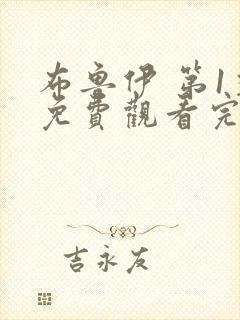 布魯伊 第1
免費觀看完
吉永友